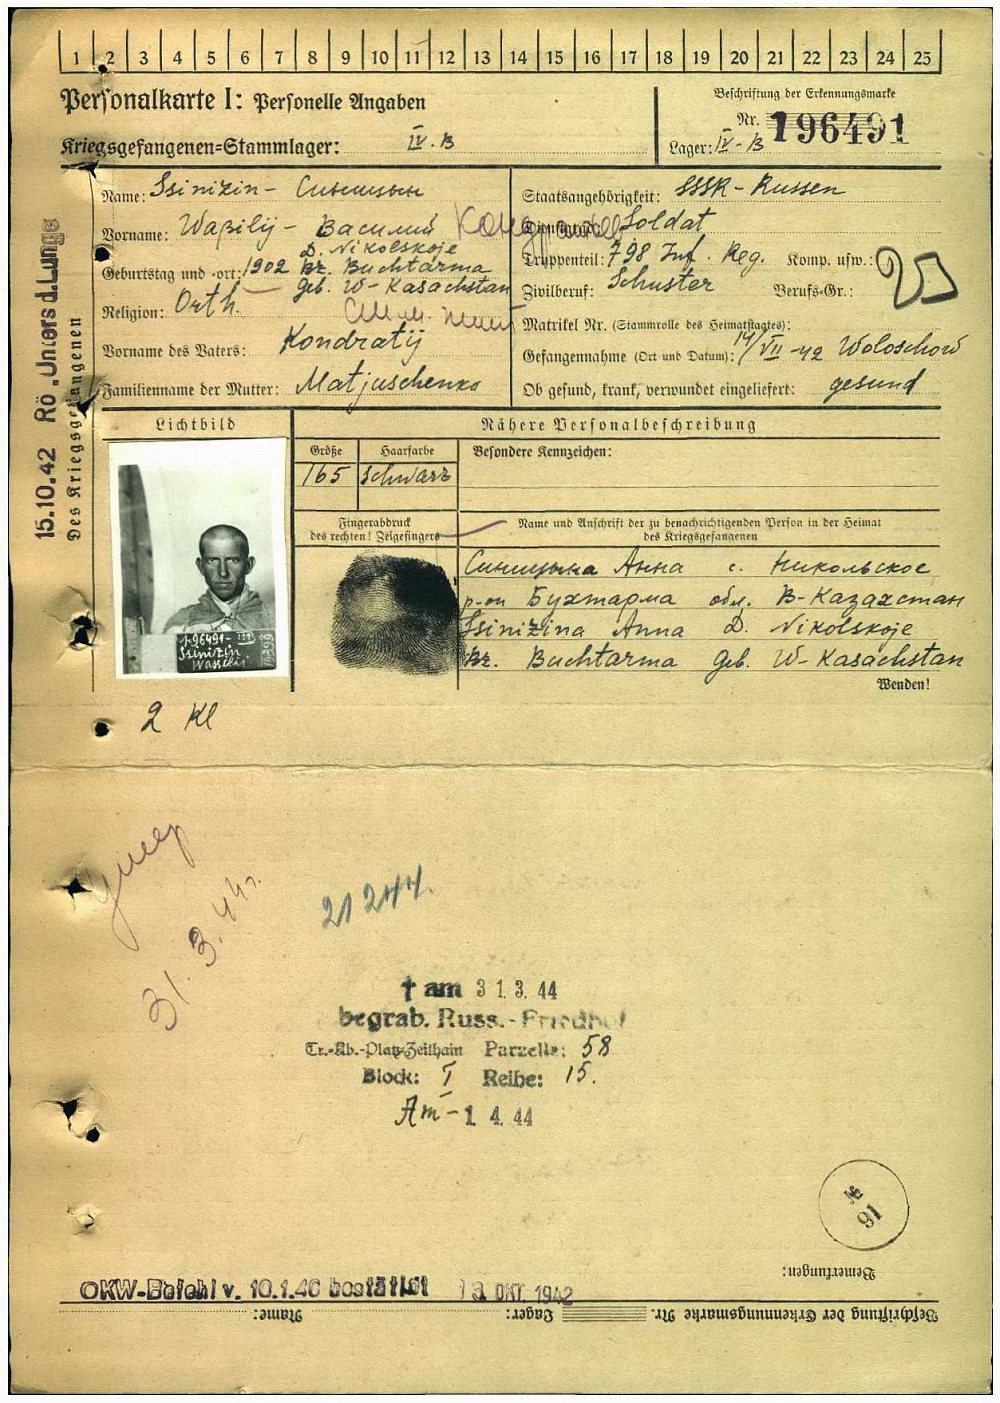 1 2 3 4 5 6 7 8 9 10 11 12 13 14 15 16 17 18 19 20 21 22 23 24 25
Personalkarte I: Personelle Angaben
Kriegsgefangenen-Stammlager: IV-B
Beschriftung der Erkennungsmarke
Nr. 196491
Lager: IV-B
Name: Ssinizin - Синицын
Vorname: Waßilij - Василий
Geburtstag und -ort: 1902 D. Nikolskoje
Kr. Buchtarma
geb. W-Kasachstan
Religion: Orth.
Vorname des Vaters: Kondratij
Familienname der Mutter: Matjuschenko
Staatsangehörigkeit: SSSR - Russen
Dienstgrad: Soldat
Truppenteil: 798 Inf. Reg. Komp. usw.:
Zivilberuf: Schuster Berufs-Gr.: 25
Matrikel Nr. (Stammrolle des Heimatstaates):
Gefangennahme (Ort und Datum): 14/VII-42 Woloschow
Ob gesund, krank, verwundet eingeliefert: gesund
15.10.42 Rö.Unters d.Lunge
Des Kriegsgefangenen
Lichtbild
Nähere Personalbeschreibung
Größe Haarfarbe Besondere Kennzeichen:
165 schwarz
Fingerabdruck
des rechten! Zeigefingers
Name und Anschrift der zu benachrichtigenden Person in der Heimat
des Kriegsgefangenen
Синицына Анна с. Никольское
р-он Бухтарма обл. В-Казахстан
Ssinizina Anna D. Nikolskoje
Kr. Buchtarma Geb. W-Kasachstan
Wenden!
196491-
Ssinizin
Wassilij
2 Kl
умер
31.3.44г.
21244.
† am 31.3.44
begrab. Russ.-Friedhof
Tr.-Üb.-Platz-Zeithain Parzelle: 58
Block: I Reihe: 15.
Am - 1.4.44
№
91
Bemerkungen:
OKW-Befehl v. 10.1.40 bestätigt 13. OKT. 1942
Name: Lager: Beschriftung der Erkennungsmarke Nr.